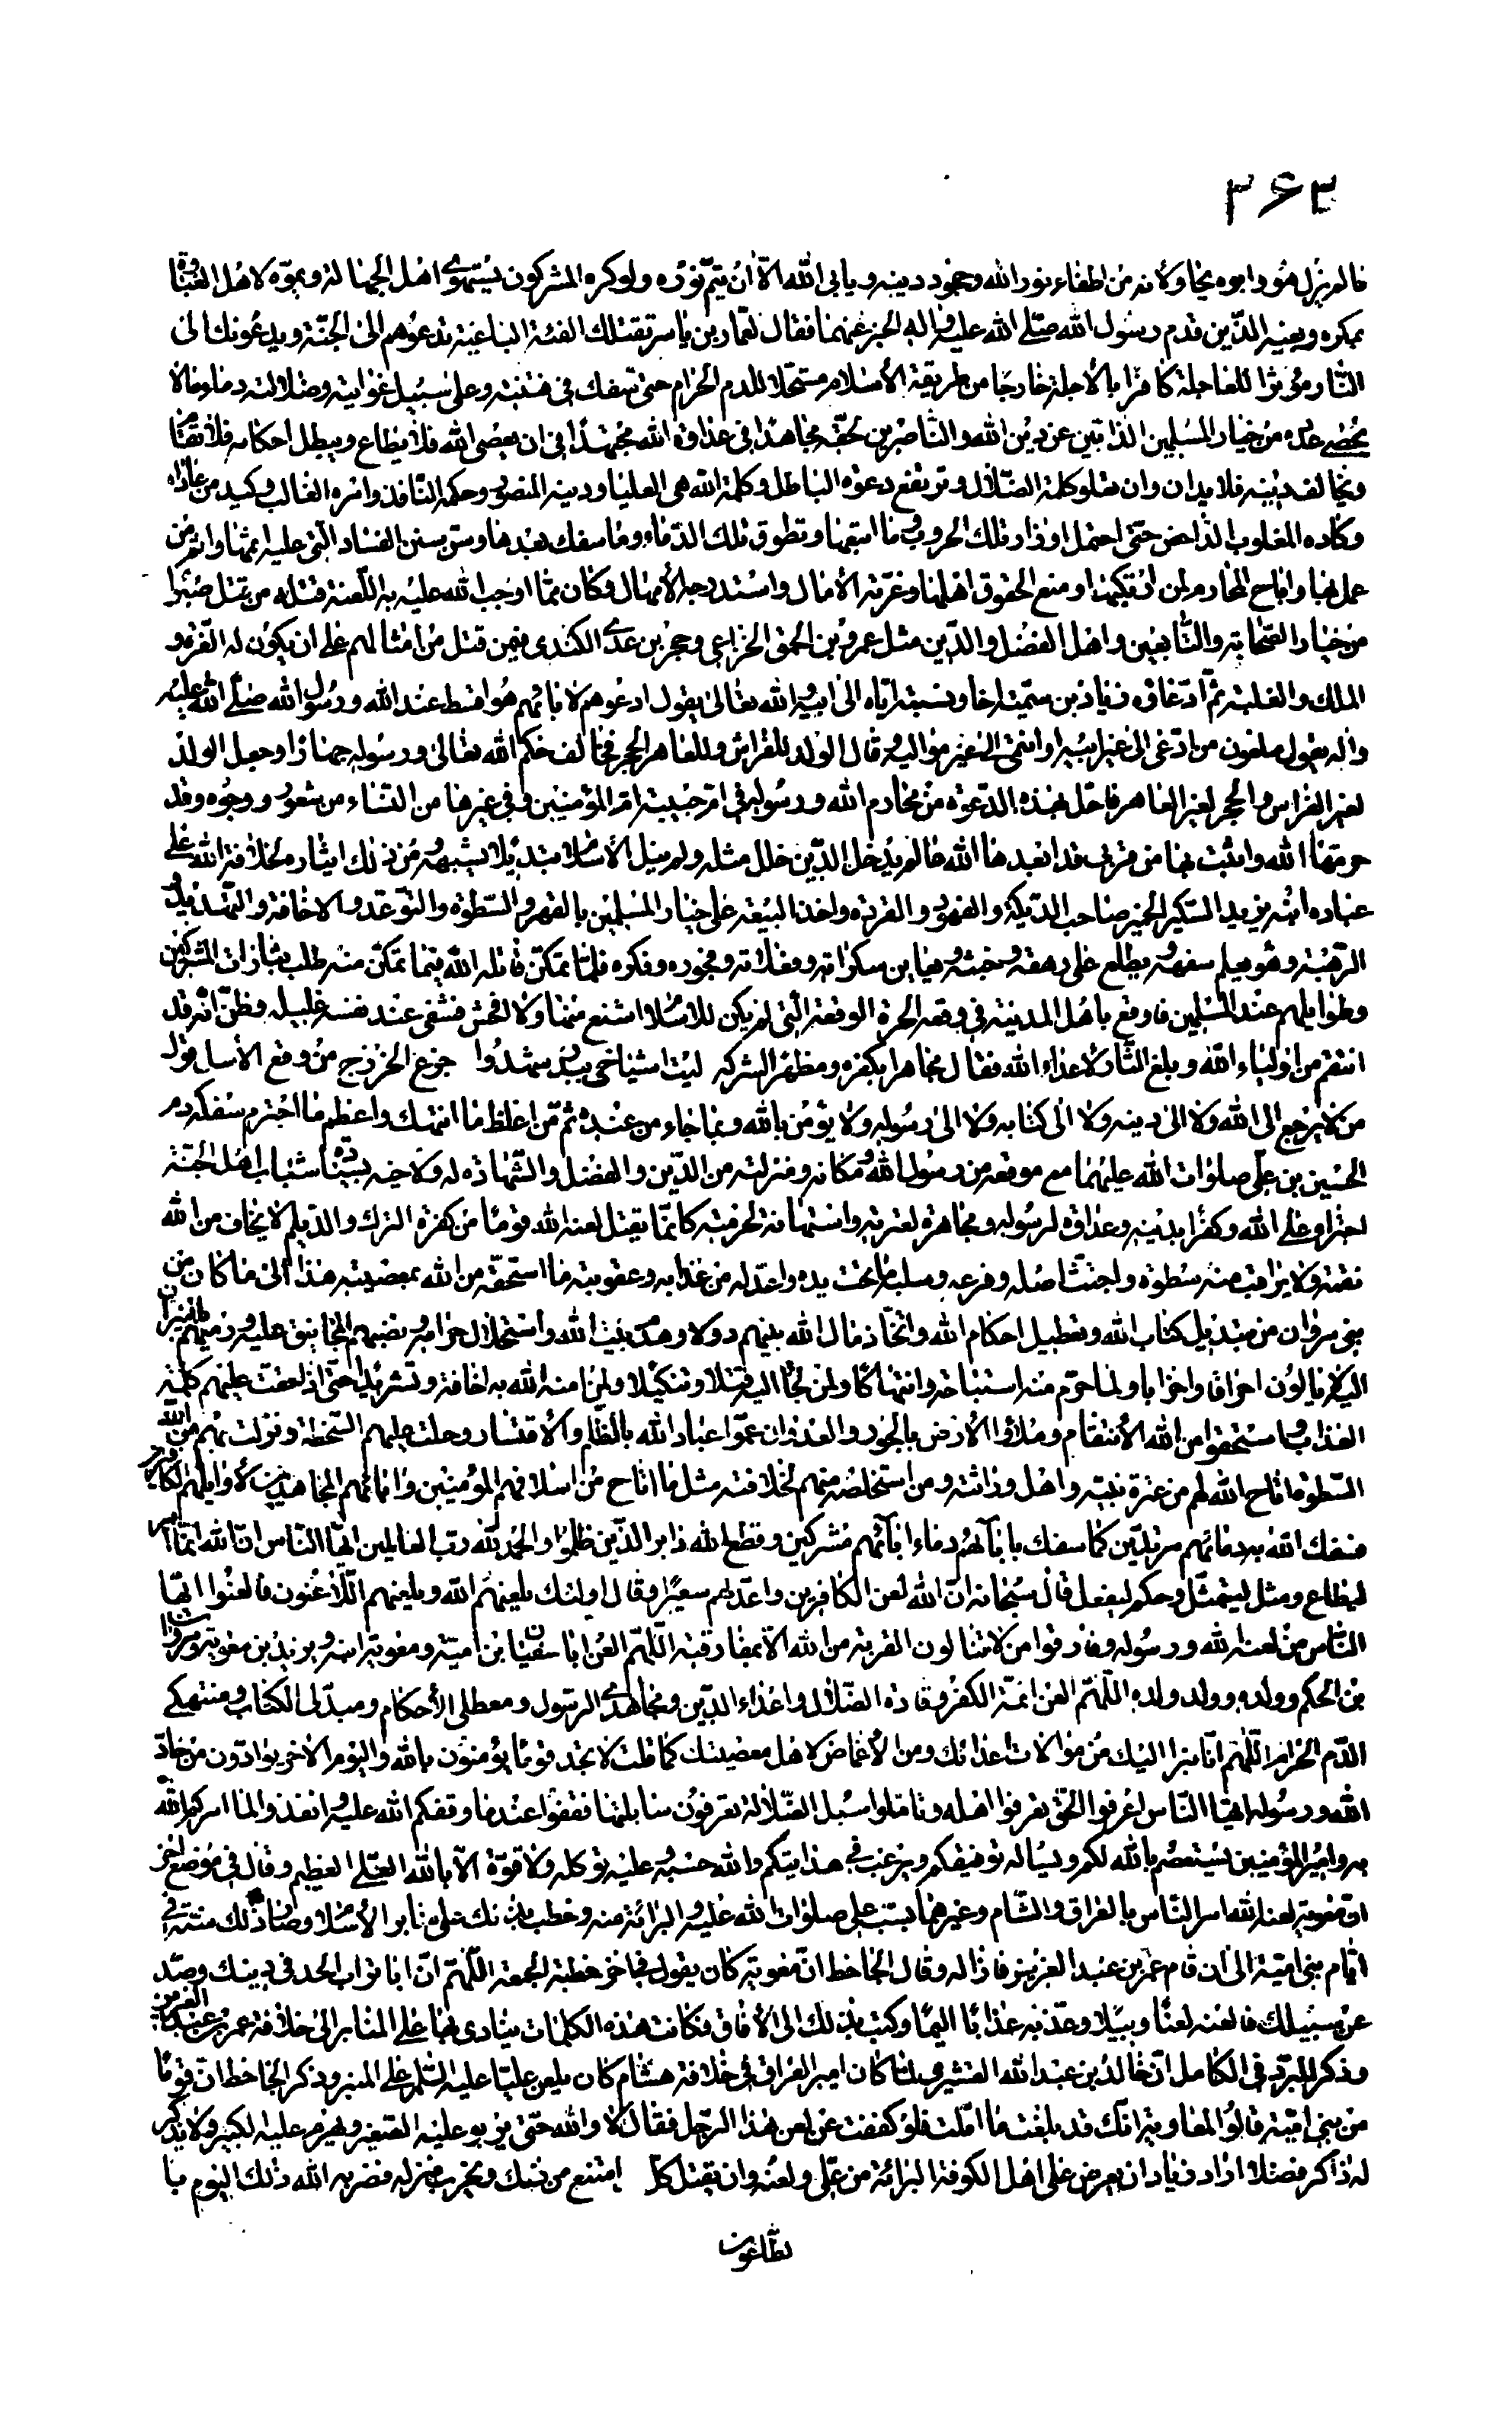 ٣۶٣
ما لم يزل هو وابوه يحاولانه من اطفاء نور الله وجحود دينه ويابى الله الّا ان يتمّ نوره ولو كره المشركون يستهوى اهل الجهالة ويموّه لاهل الغباوة
بمكره وبغيه الذين قدم رسول الله صلّى الله عليه واله الخبر عنهما فقال لعمار بن ياسر تقتلك الفئة الباغية تدعوهم الى الجنّة ويدعونك الى
النّار مؤثرا للعاجلة كافرا بالأجلة خارجا من طريقة الأسلام مستحلا للدم الحرام حتى سفك فى فتنته وعلى سبيل غوايته وضلالته دما ومالا
يحصى عدده من خيار المسلمين الذابّين عن دين الله والناصرين لحقّه مجاهدا فى عداوة الله مجتهدا فى ان يعصى الله فلا يطاع ويبطل احكامه فلا تقام
ويخالف دينه فلا يدان وان تعلو كلمة الضّلال وترتفع دعوة الباطل وكلمة الله هى العليا ودينه المنصور وحكمه النّافذ وامره الغالب وكيد من عاداه
وكاده المغلوب الداحض حتّى احتمل اوزار تلك الحروب وما اتبعها وتطوّق تلك الدّماء وما سفك بعدها وسنّ سنن الفساد الّتى عليه اثمها واثم من
عمل بها واباح المحارم لمن ارتكبها ومنع الحقوق اهلها وغرّته الأمال واستدرجه الأمهال وكان ممّا اوجب الله عليه به اللّعنة قتله من قتل صبرا
من خيار الصّحابة والتّابعين واهل الفضل والدّين مثل عمرو بن الحمق الخزاعى وحجر بن عدى الكندى فيمن قتل من امثالهم على ان يكون له العزّة و
الملك والغلبة ثمّ ادّعاؤه زياد بن سميّة اخا ونسبته ايّاه الى ابيه والله تعالى يقول ادعوهم لابائهم هو اقسط عند الله ورسول الله صلّى الله عليه
واله يقول ملعون من ادّعى الى غير ابيه او انتمى الى غير مواليه وقال الولد للفراش وللعاهر الحجر فخالف حكم الله تعالى ورسوله جهارا وجعل الولد
لغير الفراش والحجر لغير العاهر فاحل بهذه الدّعوة من محارم الله ورسوله فى امّ حبيبة امّ المؤمنين وفى غيرها من النّساء من شعور ووجوه وقد
حرّمها الله واثبت بها من قربى قد ابعدها الله ما لم يدخل الدّين خلل مثله ولم ينل الأسلام تبديلا يشبهه ومن ذلك ايثاره لخلافة الله على
عباده ابنه يزيد السّكير الخمير صاحب الديكة والفهود والقردة واخذ البيعة على خيار المسلمين بالقهر والسّطوة والتوعّد والاخافة والتهديد و
الرّهبة وهو يعلم سفهه ويطلع على رهقه وخبثه ويعاين سكراته وفعلاته وفجوره وكفره فلمّا تمكّن قاتله الله فيما تمكّن منه طلب بثارات المشركين
وطوايلهم عند المسلمين فاوقع باهل المدينة فى وقعة الحرة الوقعة الّتى لم يكن للاسلام اشنع منها ولا افحش فشفى عند نفسه غليله وظنّ انّه قد
انتقم من اولياء الله وبلغ الثّار لاعداء الله فقال مجاهرا بكفره ومظهرا لشركه ليت اشياخى ببدر شهدوا جزع الخزرج من وقع الأسل قول
من لا يرجع الى الله ولا الى دينه ولا الى كتابه ولا الى رسوله ولا يؤمن بالله وبما جاء من عنده ثمّ من اغلظ ما انتهك واعظم ما اجترم سفكه دم
الحسين بن علىّ صلوات الله عليهما مع موقعه من رسول الله ومكانه ومنزلته من الدّين والفضل والشّهادة له ولاخيه بسيادة شباب اهل الجنّة
اجتراء على الله وكفرا بدينه وعداوة لرسوله ومجاهرة لعترته واستهانة لحرمته كانّما يقتل لعنه الله قوما من كفرة الترك والديلم لا يخاف من الله
نقمة ولا يراقب منه سطوة واجتثّ اصله وفرعه وسلبه ما تحت يده واعدّ له من عذابه وعقوبته ما استحقّه من الله بمعصيته هذا الى ما كان من
بنى مروان من تبديل كتاب الله وتعطيل احكام الله واتّخاذ مال الله بينهم دولا وهدم بيت الله واستحلال حرامه ونصبهم المجانيق عليه ورميهم بالنيران
اليه لا يالون احراقا واخرابا ولما حرّم منه استباحة وانتهاكا ولمن لجأ اليه قتلا وتنكيلا ولمن امنه الله به اخافة وتشريدا حتّى اذا حقت عليهم كلمة
العذاب واستحقوا من الله الأنتقام وملأوا الأرض بالجور والعدوان وعمّوا عباد الله بالظّلم والأقتسار وحلت عليهم السّخطة ونزلت بهم من الله
السّطوة اتاح الله لهم من عترة نبيّه واهل وراثته ومن استخلصه منهم لخلافته مثل ما اتاح من اسلافهم المؤمنين وابائهم المجاهدين لأوايلهم الكافرين
فسفك الله به دمائهم مرتدّين كما سفك بابائهم دماء ابائهم مشركين وقطع الله دابر الذّين ظلموا والحمد لله ربّ العالمين ايّها النّاس انّ الله انّما امر
ليطاع ومثل ليتمثّل وحكم ليفعل قال سبحانه انّ الله لعن الكافرين واعدّ لهم سعيرا وقال اولئك يلعنهم الله ويلعنهم اللّاعنون فالعنوا ايّها
النّاس من لعنه الله ورسوله وفارقوا من لا تنالون القربة من الله الّا بمفارقته اللّهمّ العن ابا سفيان بن اميّة ومعوية ابنه ويزيد بن معوية ومروان
بن الحكم وولده وولد ولده اللّهمّ العن ائمّة الكفر وقادة الضّلال واعداء الدّين ومجاهدى الرسول ومعطلى الأحكام ومبدّلى الكتاب ومنتهكى
الدّم الحرام اللّهمّ انّا نبرأ اليك من موالات اعدائك ومن الأغماض لاهل معصيتك كما قلت لا تجد قوما يؤمنون بالله واليوم الاخر يوادّون من حادّ
الله ورسوله ايّها النّاس اعرفوا الحقّ تعرفوا اهله وتاملوا سبل الضّلالة تعرفون سابلها فقفوا عند ما وقفكم الله عليه وانفذوا لما امركم الله
به وامير المؤمنين يستعصم بالله لكم ويساله توفيقكم ويرغب فى هدايتكم والله حسبه وعليه توكله ولا قوّة الّا بالله العلىّ العظيم وقال فى موضع اخر
انّ معوية لعنه الله امر النّاس بالعراق والشّام وغيرهما بسبّ على صلوات الله عليه والبرائة منه وخطب بذلك على منابر الأسلام وصار ذلك سنّة فى
ايّام بنى اميّة الى ان قام عمر بن عبد العزيز فازاله وقال الجاحظ انّ معوية كان يقول فى اخر خطبة الجمعة اللّهمّ انّ ابا تراب الحد فى دينك وصدّ
عن سبيلك فالعنه لعنا وبيلا وعذّبه عذابا اليما وكتب بذلك الى الأفاق فكانت هذه الكلمات ينادى بها على المنابر الى خلافة عمر بن عبد العزيز
وذكر المبرّد فى الكامل انّ خالد بن عبد الله القشيرى لمّا كان امير العراق فى خلافة هشام كان يلعن عليّا عليه السّلم على المنبر وذكر الجاحظ انّ قوما
من بنى اميّة قالوا لمعاوية انّك قد بلغت ما امّلت فلو كففت عن لعن هذا الرّجل فقال لا والله حتّى يربو عليه الصّغير ويهرم عليه الكبير ولا يذكر
له ذاكر فضلا اراد زياد ان يعرض على اهل الكوفة البرائة من علّى ولعنه وان يقتل كلّ امتنع من ذلك ويخرب منزله فضربه الله ذلك اليوم با
لطّاعون